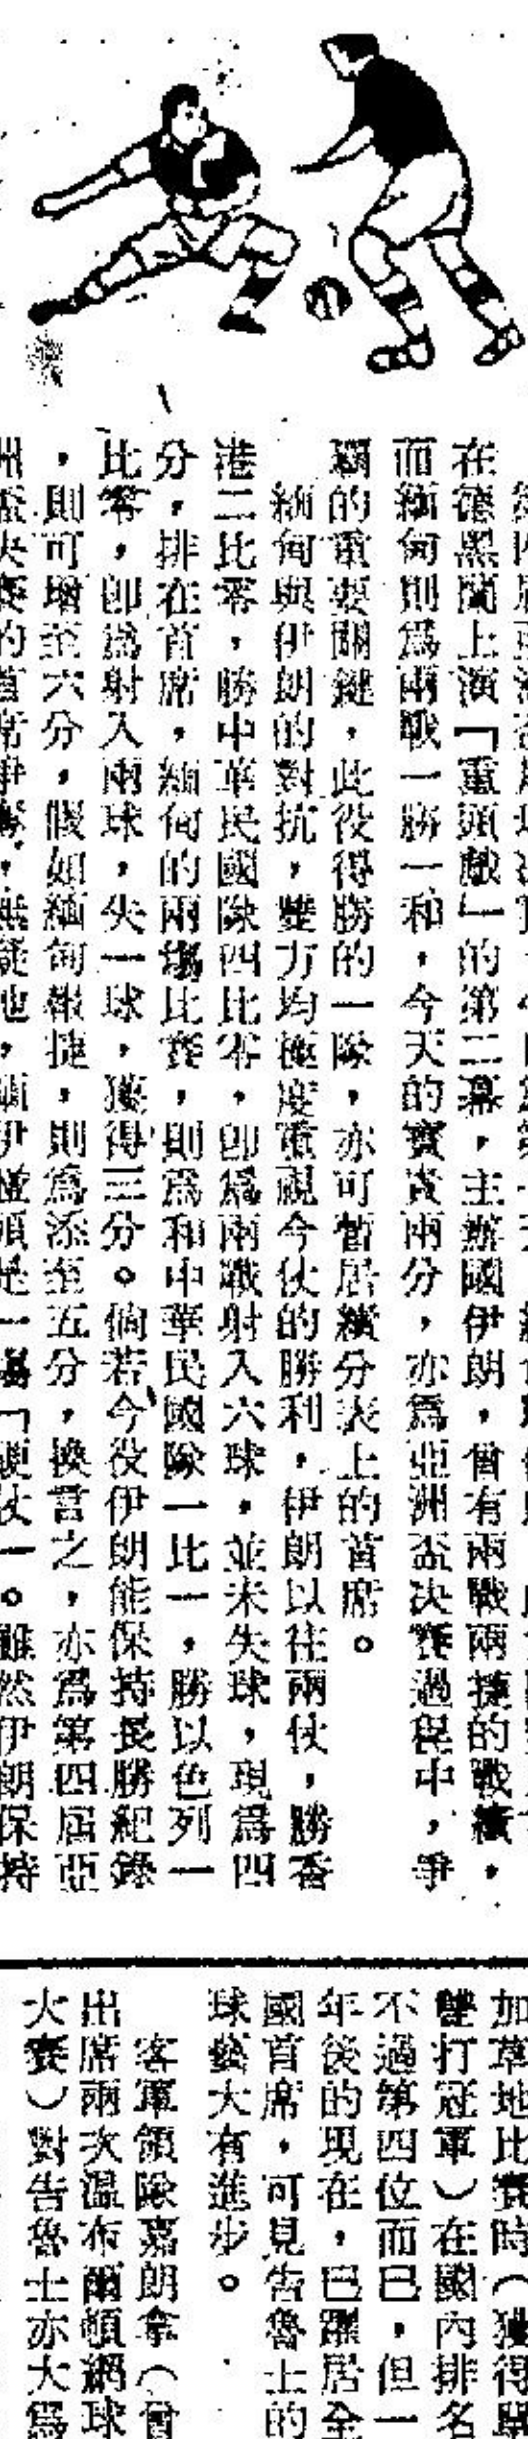 在德黑蘭上演「重頭戲」的第二幕，主辦國伊朗，曾有兩戰兩捷的戰績，
而緬甸則爲兩戰一勝一和，今天的寶貴兩分，亦爲亞洲盃決賽過程中，爭
覇的重要關鍵，此役得勝的一隊，亦可暫居積分表上的首席。
緬甸與伊朗的對抗，雙方均極度重視今仗的勝利，伊朗以往兩仗，勝香
港二比零，勝中華民國隊四比零，卽爲兩戰射入六球，並未失球，現爲四
分，排在首席，緬甸的兩場比賽，則爲和中華民國隊一比一，勝以色列一
比零，卽爲射入兩球，失一球，獲得三分。倘若今役伊朗能保持長勝紀錄
，則可增至六分，假如緬甸報捷，則爲添至五分，換言之，亦爲第四屆亞
洲盃決賽的首席爭奪，無疑地，緬伊碰頭是一場「硬仗」。雖然伊朗保持
加草地比賽時（獲得單
雙打冠軍）在國內排名
不過第四位而已，但一
年後的現在，已躍居全
國首席，可見告魯士的
球藝大有進步。
客軍領隊嘉朗拿（曾
出席兩次溫布爾頓網球
大賽）對告魯士亦大爲